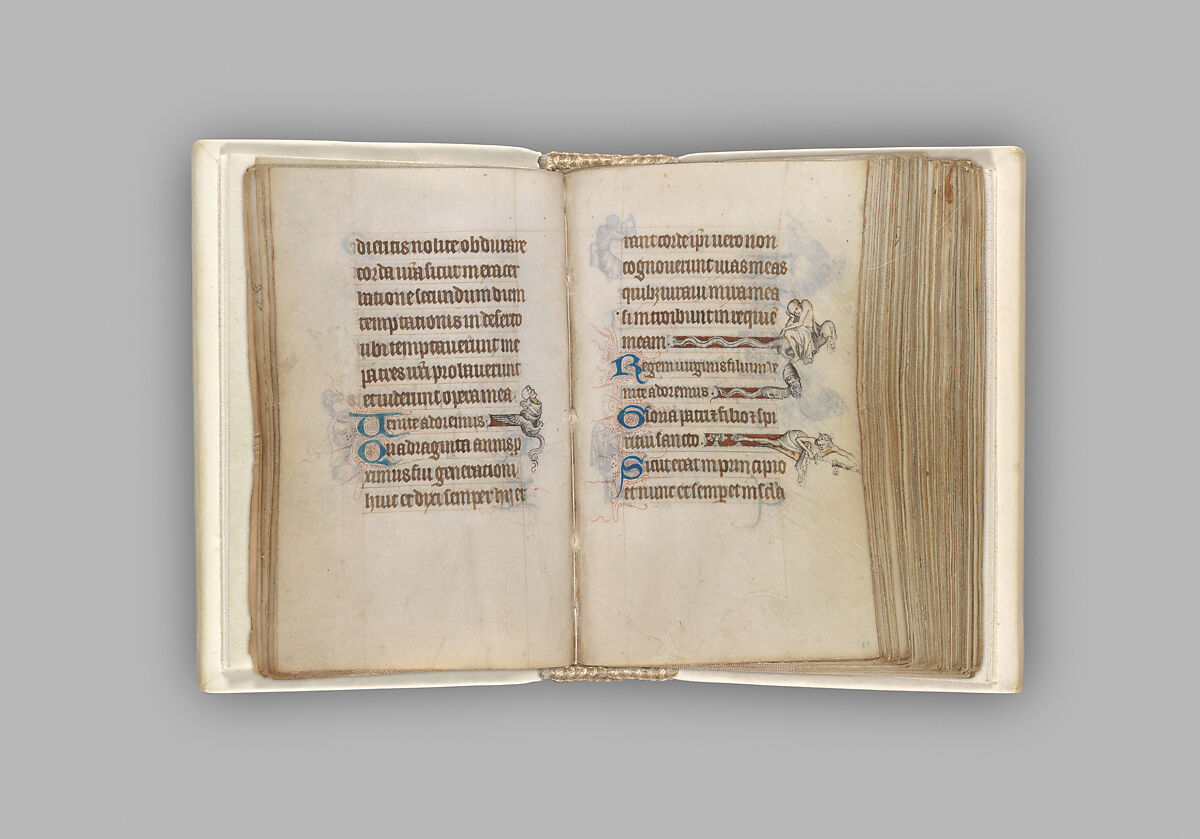 dicitis nolite obdurare
corda vr̃a sicut in exacer
batione secundum diem
temptationis in deserto
ubi temptaverunt me
patres vr̃i probaverunt
et viderunt opera mea.
Venite adoremus.
Quadraginta annis p
ximus fui generationi
huic et dixi semper hij er
rant corde ip̃i vero non
cognoverunt vias meas
quibȝ iuravi in ira mea
si introibunt in requiē
meam.
Regem virginis filium ve
nite adoremus.
Gloria patri ⁊ filio ⁊ spi
ritui sancto.
Sicut erat in principio
et nunc et semper et in sc̃la